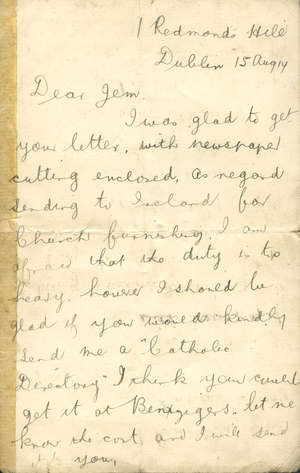 1 Redmonds Hill
Dublin 15 Aug 14
Dear Jem
I was glad to get
your letter, with newspaper
cutting enclosed, as regard
sending to Ireland for
Church furnishing, I am
afraid that the duty is too
heavy. however I should be
glad if you would kindly
send me a "Catholic
Directory" I think you could
get it at Benzigers. let me
know the cost, and I will send
it to you,